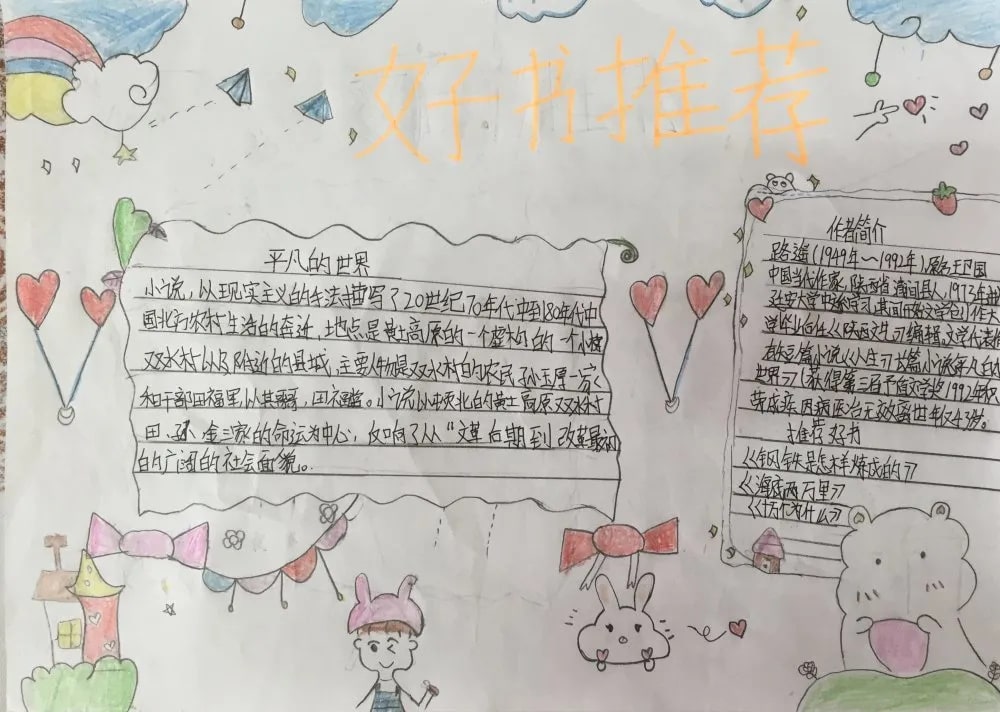 好书推荐
平凡的世界
小说，以现实主义的手法描写了20世纪70年代中到80年代中
国北方农村生活的奔近，地点是黄土高原的一个虚构的一个小
双水村以及附近的县城，主要人物是双水村的农民孙玉厚一家
和干部田福里以其哥，田福堂。小说以中央北的黄土高原双水村
田、孙、金三家的命运为中心，反响了从“文革后期到改革最初
的广阔的社会面貌。
作者简介
路遥(1949年~1992年)原名王卫国
中国当代作家，陕西省清间县人，1973年进
延安大学中 学习，其间开始文学创作大
学毕业后任《陕西文艺》编辑，文学代表作
表作篇小说《人生》长篇小说《平凡的
世界》(获得第三届矛盾文学奖1992年
劳成疾因病医治无效离世年仅43岁。
推荐好书
《钢铁是怎样炼成的》
《海底两万里》
《十万个为什么》